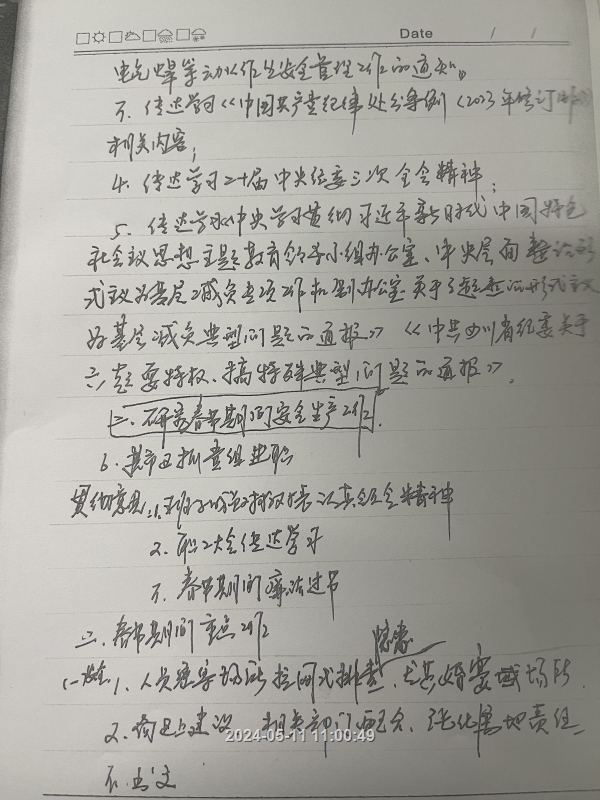 Date / /
电气焊等动火作业安全管理工作的通知。
3. 传达学习《中国共产党纪律处分条例》(2023年修订版)
相关内容;
4. 传达学习二十届中央纪委三次全会精神;
5. 传达学习《中央学习贯彻习近平新时代中国特色
社会主义思想主题教育领导小组办公室、中央层面整治形
式主义为基层减负专项工作机制办公室关于3起整治形式主义
为基层减负典型问题的通报》《中共四川省纪委关于
六起耍特权、搞特殊典型问题的通报》。
二、研究春节期间安全生产工作.
6.
贯彻意见: 1. 全会精神
2. 职工大会传达学习
3. 春节期间廉洁过节
二、春节期间重点工作
隐患
(一)安全 1. 人员密集场所拉网式排查, 尤其婚宴 场所
2. 建设 相关部门配合、强化属地责任
2024-05-11 11:00:49
3.